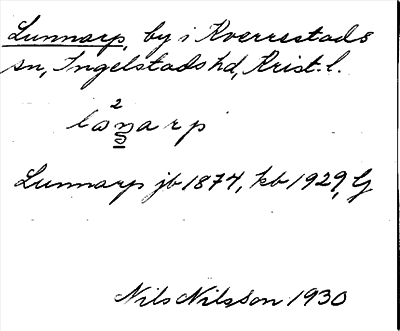 Lunnarp, by i Kverrestads
sn, Ingelstads hd, Krist. l.
2
lånarp
Lunnarp jb 1874, kb 1929, G
Nils Nilsson 1930